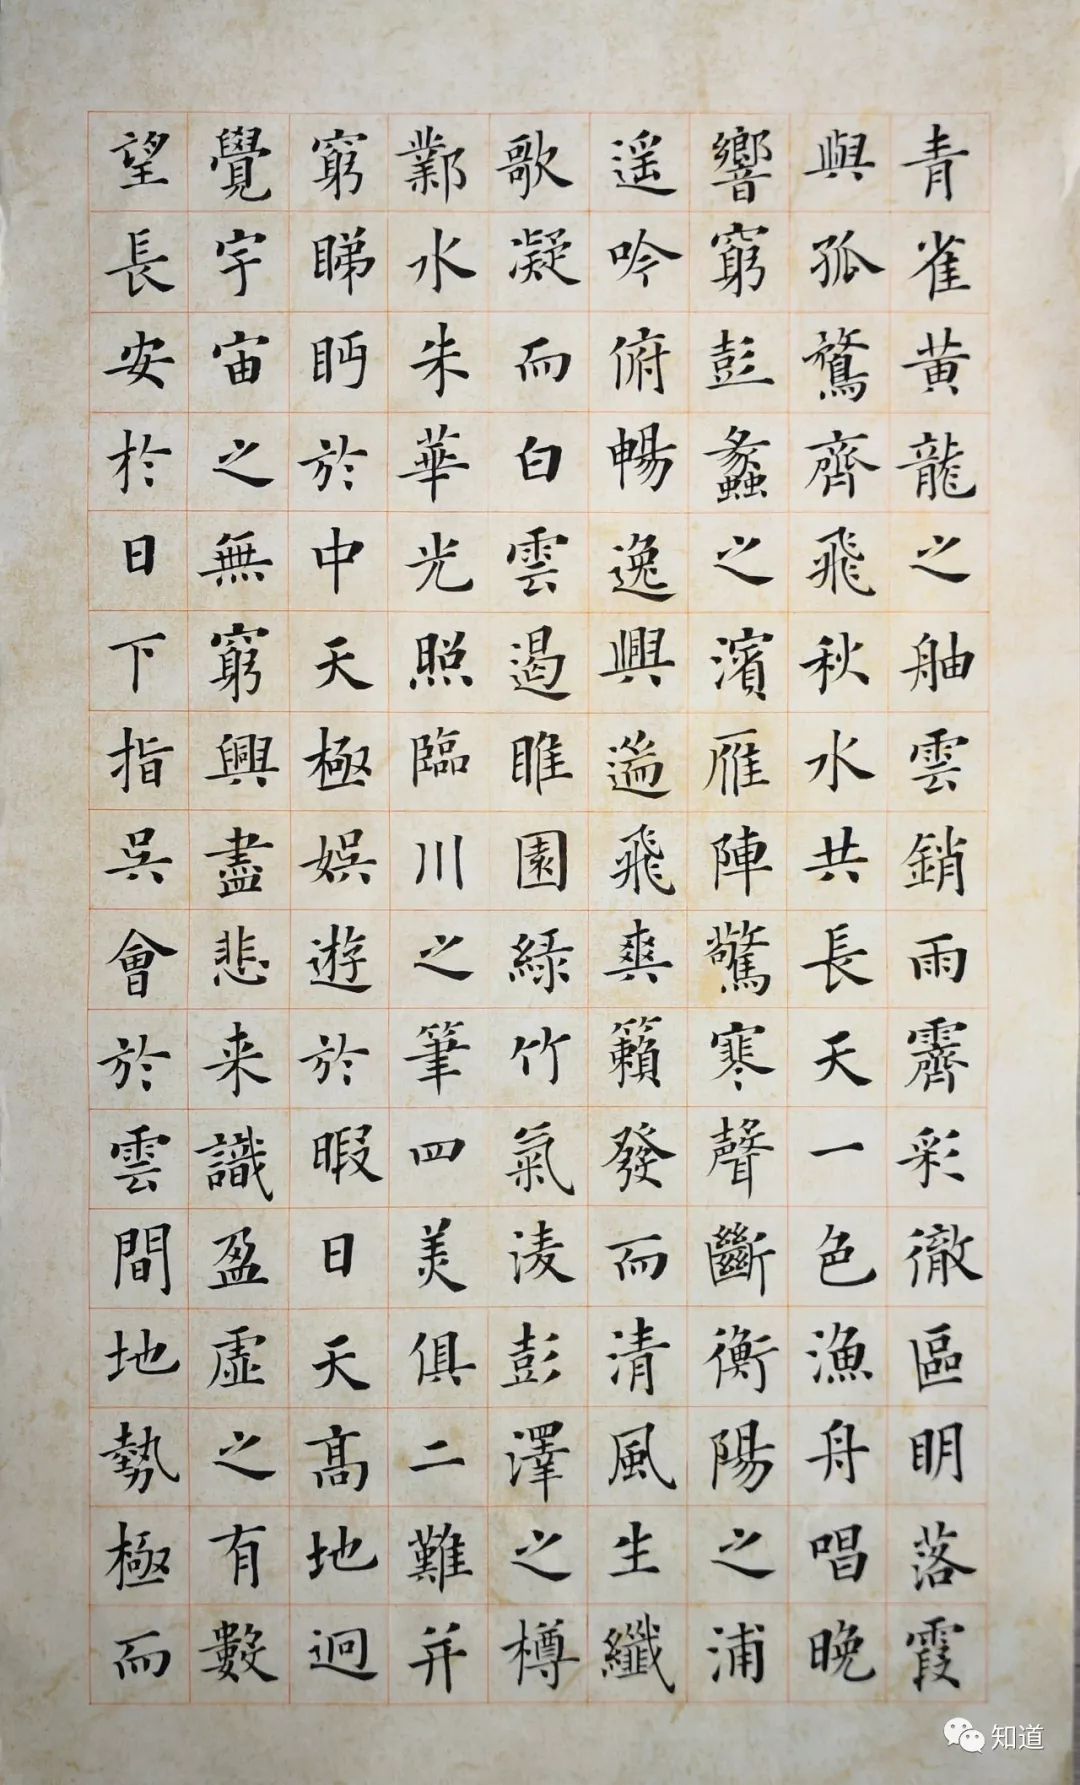 青雀黄龍之舳雲銷雨霽彩徹區明落霞
與孤鶩齊飛秋水共長天一色漁舟唱晚
響窮彭蠡之濱雁陣驚寒聲斷衡陽之浦
遥吟俯暢逸興遄飛爽籟發而清風生纖
歌凝而白雲遏睢園緑竹氣淩彭澤之樽
鄴水朱華光照臨川之筆四美俱二難并
窮睇眄於中天極娱遊於暇日天高地迥
覺宇宙之無窮興盡悲来識盈虛之有數
望長安於日下指吳會於雲間地勢極而
知道